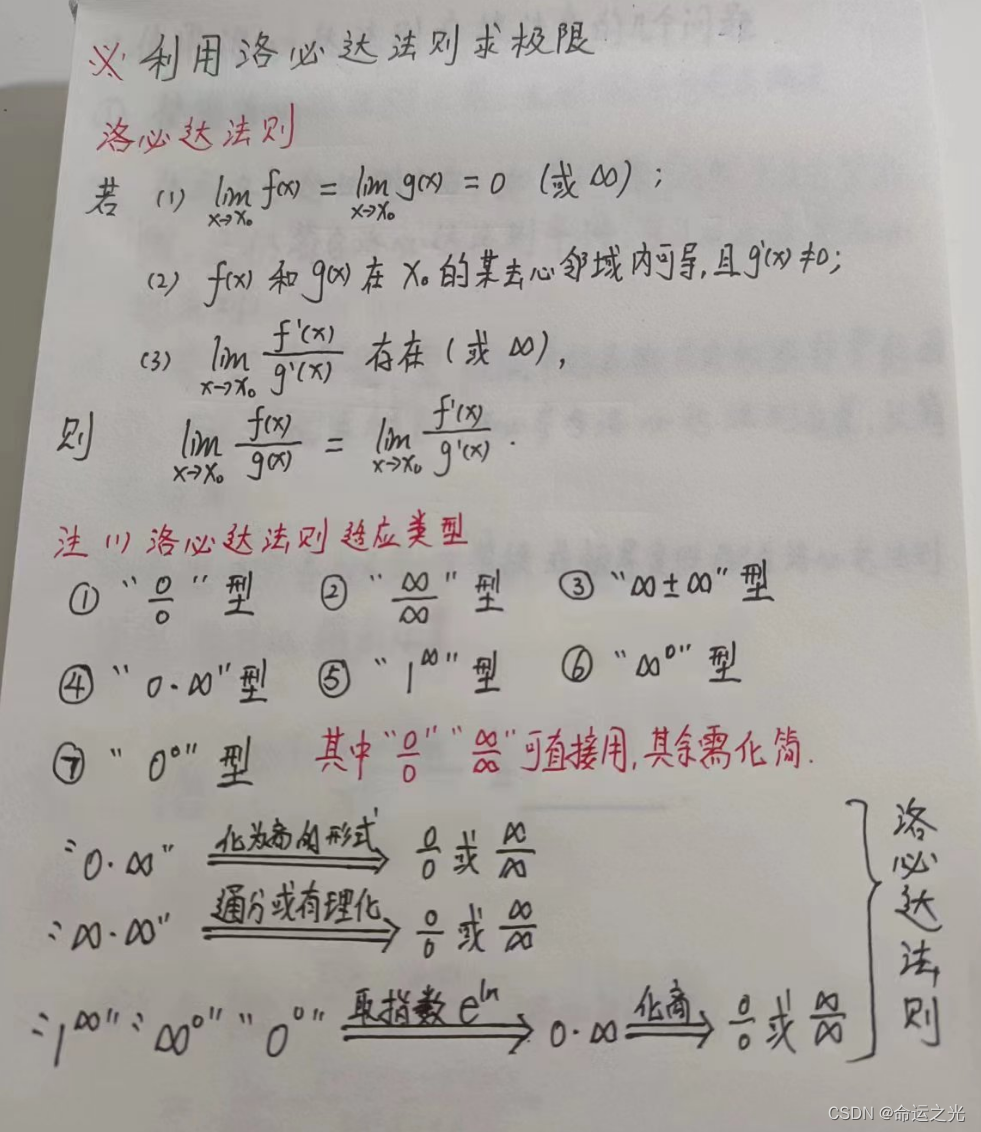 ※ 利用洛必达法则求极限
洛必达法则
若 (1) lim_{x→x₀} f(x) = lim_{x→x₀} g(x) = 0 (或 ∞) ;
(2) f(x) 和 g(x) 在 x₀ 的某去心邻域内可导,且 g'(x) ≠ 0;
(3) lim_{x→x₀} f'(x)/g'(x) 存在 ( 或 ∞ ),
则 lim_{x→x₀} f(x)/g(x) = lim_{x→x₀} f'(x)/g'(x) .
注 (1) 洛必达法则适应类型
① “0/0” 型 ② “∞/∞” 型 ③ “∞±∞” 型
④ “0·∞” 型 ⑤ “1^∞” 型 ⑥ “∞^0” 型
⑦ “0^0” 型 其中 “0/0” “∞/∞” 可直接用,其余需化简.
“0·∞” 化为商的形式 ⟹ 0/0 或 ∞/∞
“∞·∞” 通分或有理化 ⟹ 0/0 或 ∞/∞
“1^∞” “∞^0” “0^0” 取指数 e^ln ⟹ 0·∞ 化商 ⟹ 0/0 或 ∞/∞
洛必达法则
CSDN @命运之光